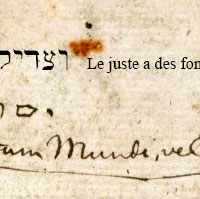 וצדיק Le juste a des fon
ם
am Mundi, vel